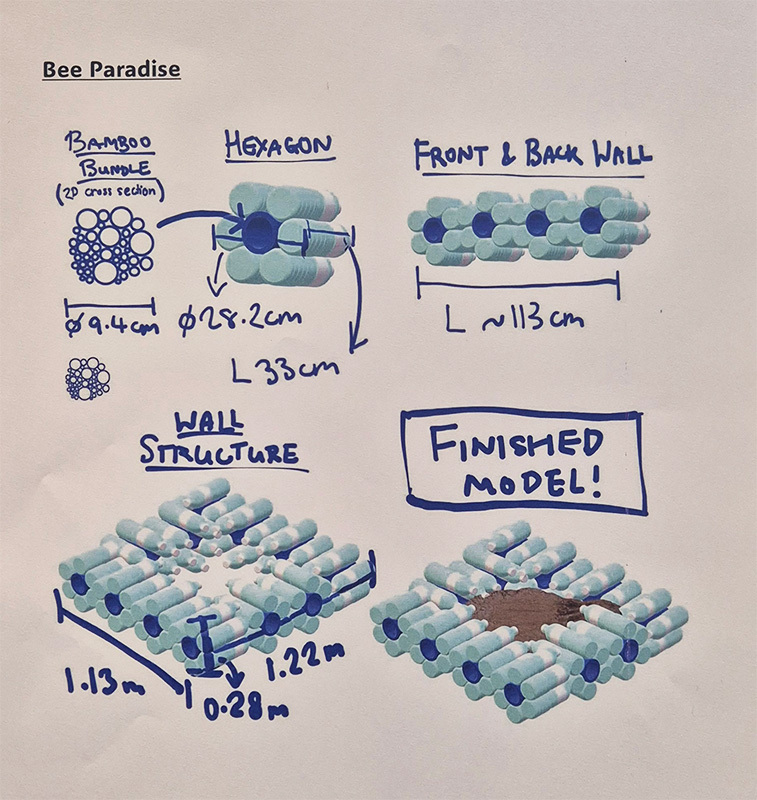 Bee Paradise
BAMBOO
BUNDLE
(2D cross section)
HEXAGON
FRONT & BACK WALL
ϕ9.4cm
ϕ28.2cm
L 33cm
L ~113cm
WALL
STRUCTURE
FINISHED
MODEL!
1.13m
0.28m
1.22m